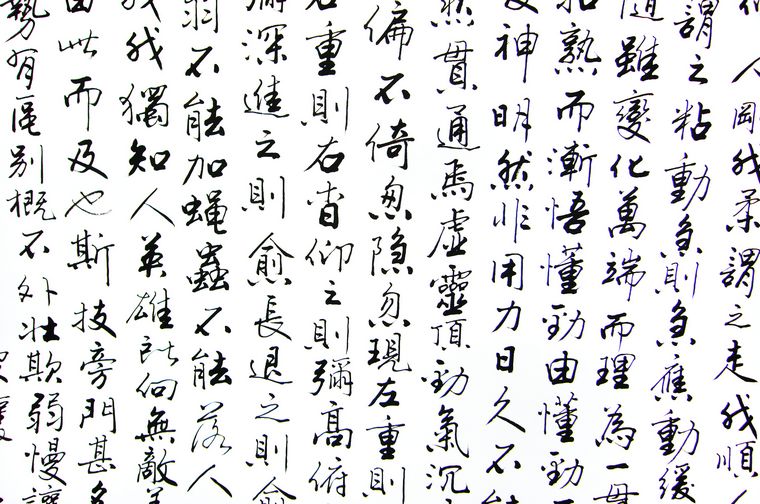 人剛我柔謂之走我順
謂之粘動急則急應動緩
隨雖變化萬端而理為一
熟而漸悟懂勁由懂勁
神明然非用力日久不
然貫通焉虛靈頂勁氣沉
偏不倚忽隐忽現左重則
重則右杳仰之則彌高俯
深進之則愈長退之則愈
羽不能加蝇蟲不能落人
我獨知人英雄所向無敵
由此而及也斯技旁門甚
勢有區别概不外壯欺弱慢讓